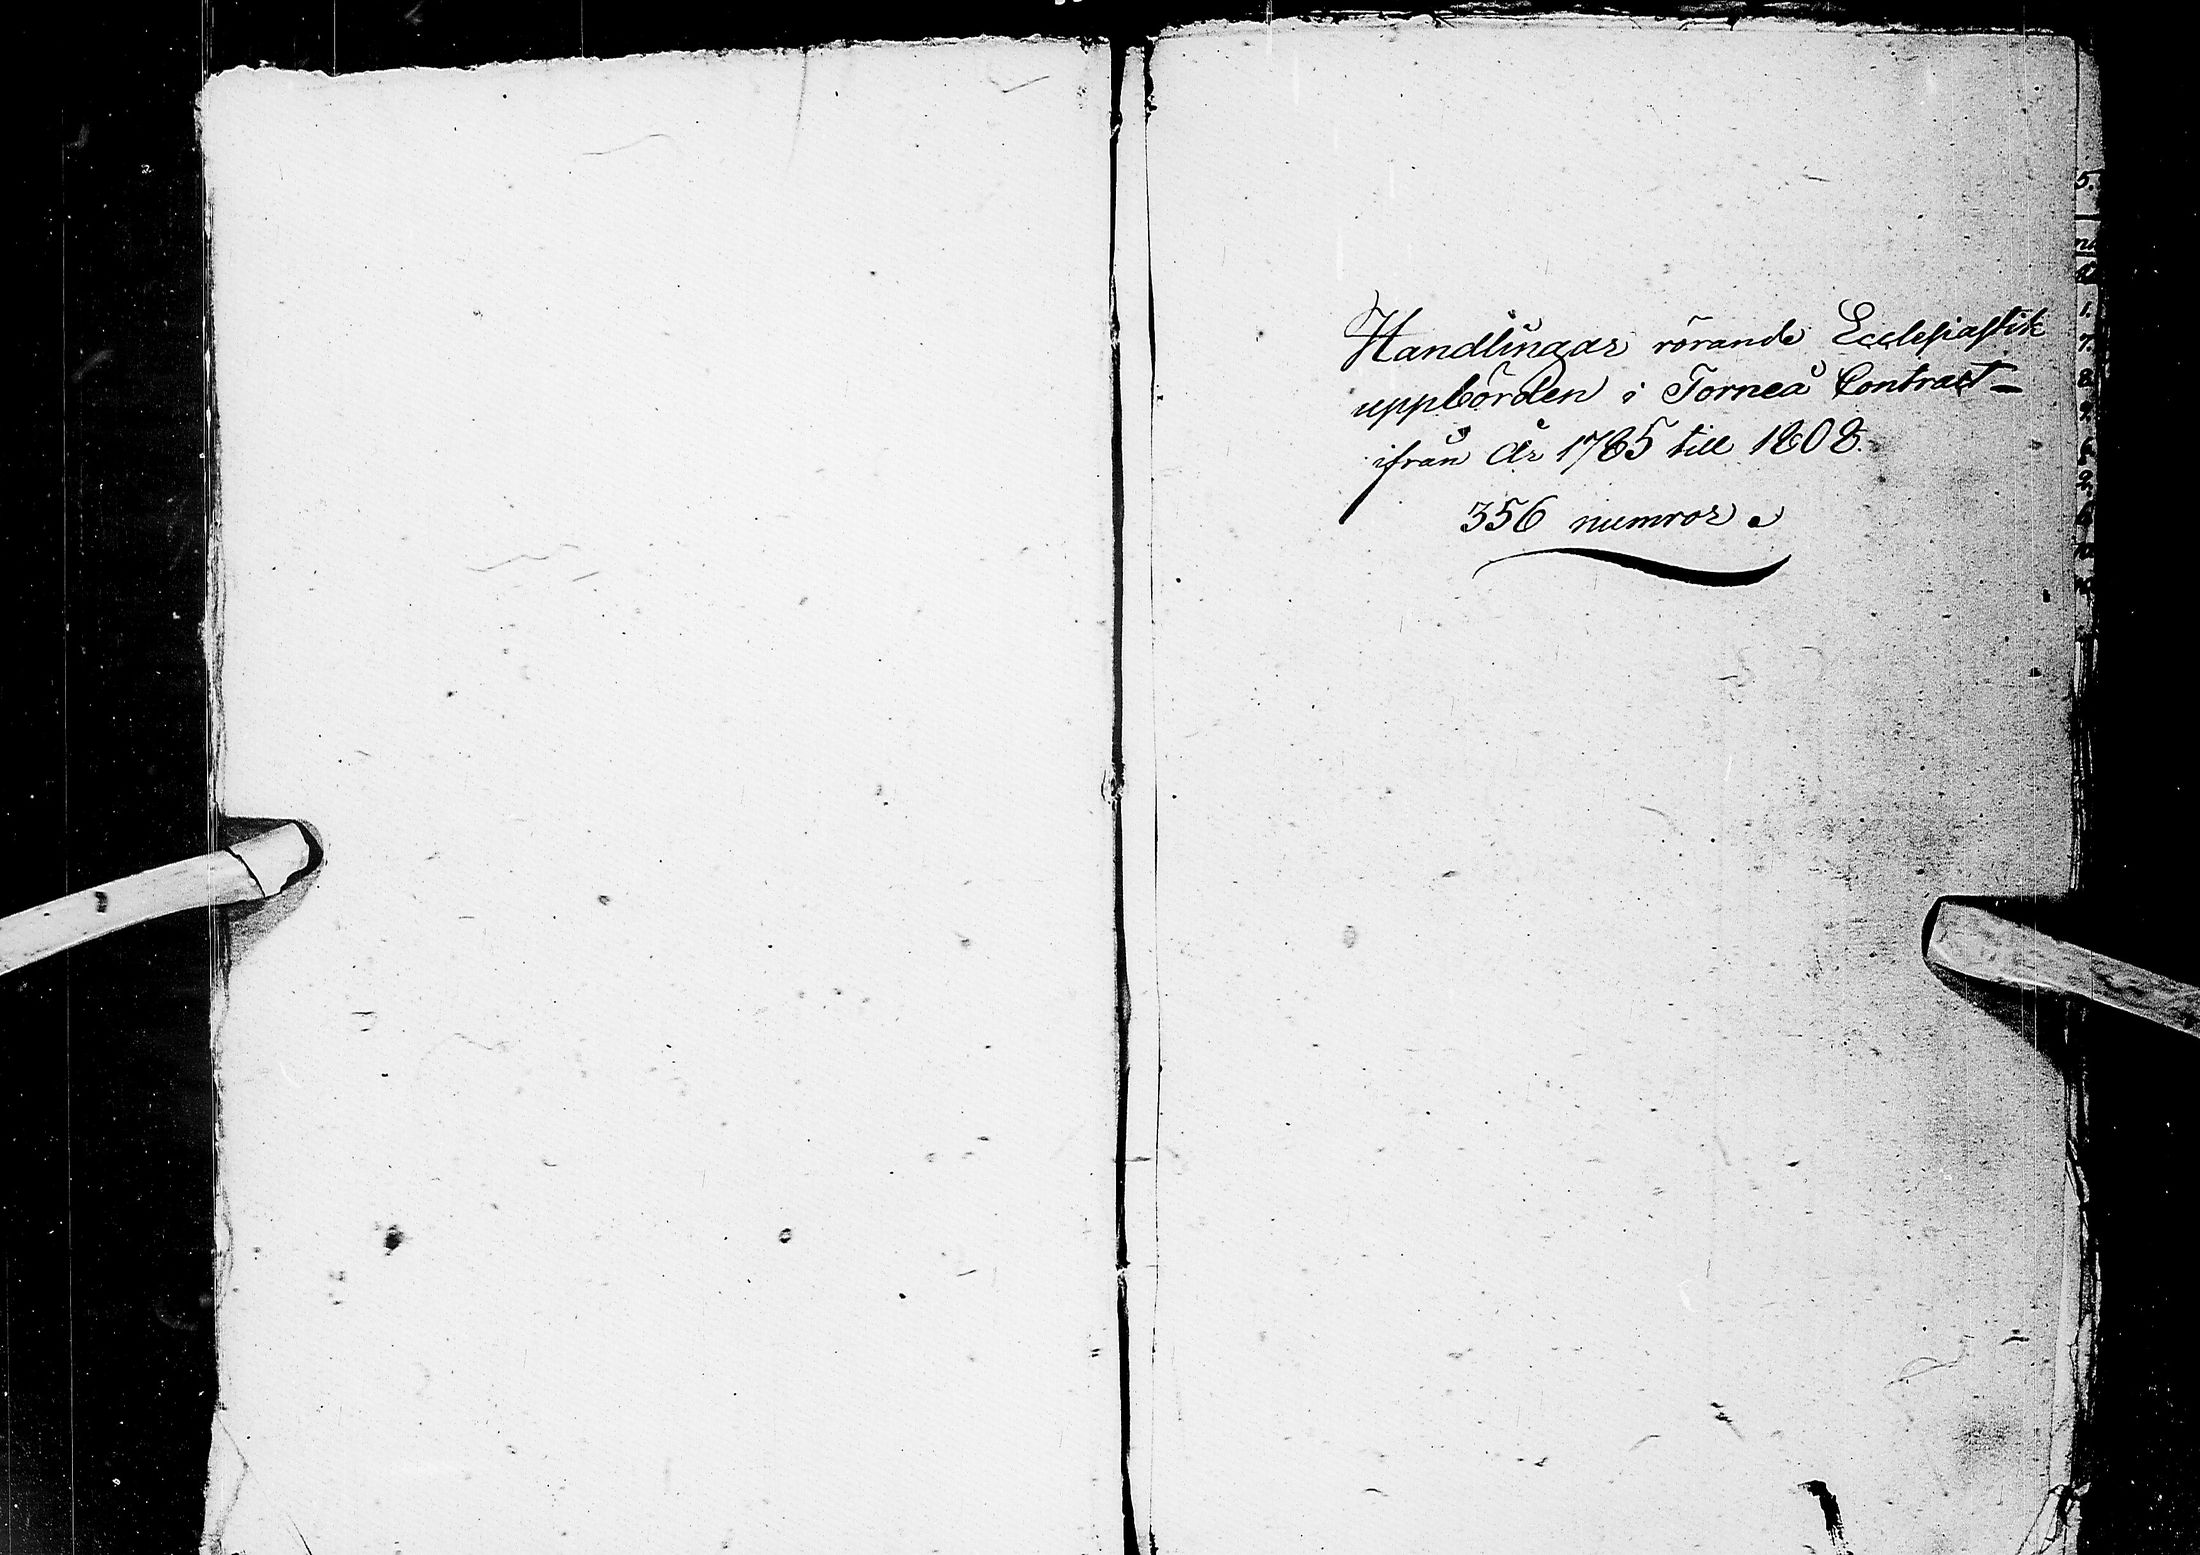 Handlingar rörande Ecclesiastik
uppbörden i Torneå Contract
ifrån År 1785 till 1808.
356 numror.